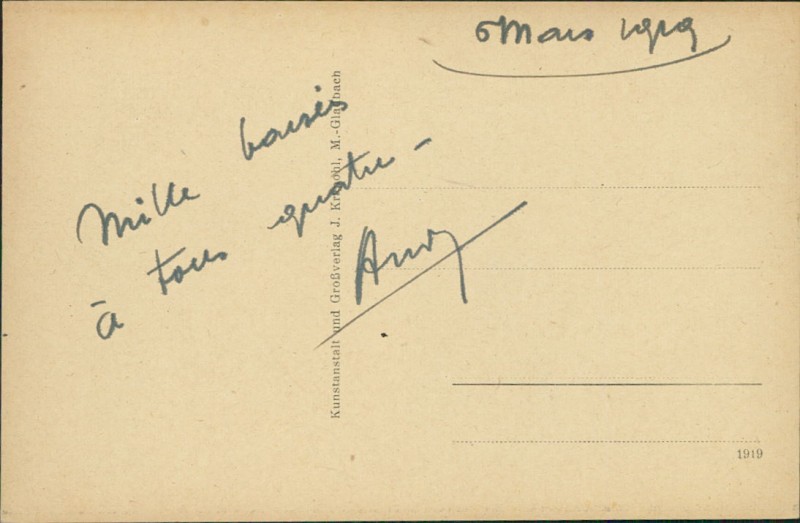 6 Mars 1919
Mille baisés
à tous quatre -
Andy
Kunstanstalt und Großverlag J. Kr ohl, M.-Gladbach
1919